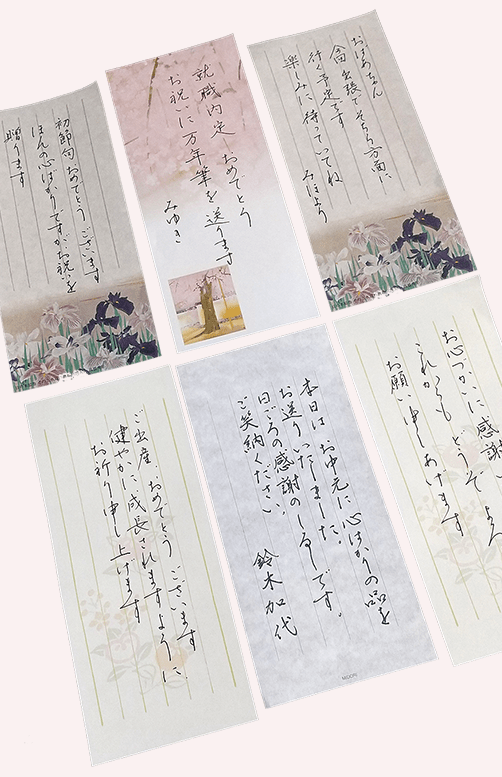 おばあちゃん
今回出張でそちら方面に
行く予定です
楽しみに待っていてね
みほより
就職内定 おめでとう
お祝いに万年筆を送ります
みゆき
初節句おめでとうございます
ほんの心ばかりですがお祝いを
贈ります
お心づかいに感謝
これからもどうぞよろ
お願い申しあげます
本日はお中元に心ばかりの品を
お送りいたしました。
日ごろの感謝のしるしです。
ご笑納ください。
鈴木加代
MIDORI
ご出産、おめでとうございます
健やかに成長されますように
お祈り申し上げます